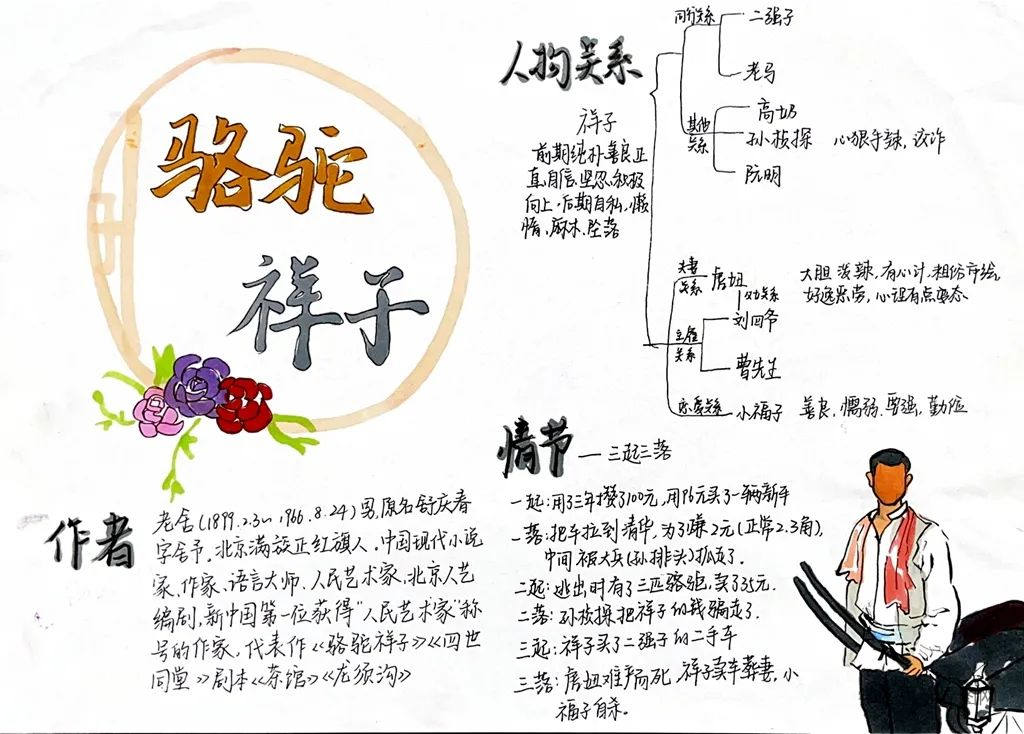 骆驼
祥子
作者
老舍(1899.2.3~1966.8.24)男,原名舒庆春
字舍予,北京满族正红旗人,中国现代小说
家,作家,语言大师,人民艺术家,北京人艺
编剧,新中国第一位获得"人民艺术家"称
号的作家,代表作《骆驼祥子》《四世
同堂》剧本《茶馆》《龙须沟》
人物关系
祥子
前期纯朴善良正
直,自信,坚忍,积极
向上,后期自私,懒
惰,麻木,坠落
同行关系
二强子
老马
其他
关系
高妈
孙侦探 心狠手辣,狡诈
阮明
夫妻
关系
虎妞
大胆泼辣,有心计,粗俗市绘,
好逸恶劳,心理有点变态
父女关系
刘四爷
主雇
关系
曹先生
恋爱关系
小福子 善良,懦弱,要强,勤俭
情节 — 三起三落
一起:用了三年攒了100元,用96元买了一辆新车
一落:把车拉到清华,为了赚2元(正常2.3角),
中间被大兵(孙排头)抓了.
二起:逃出时有了三匹骆驼,卖了35元.
二落:孙侦探把祥子的钱骗走了.
三起:祥子买了二强子的二手车
三落:虎妞难产而死,祥子卖车葬妻,小
福子自杀.